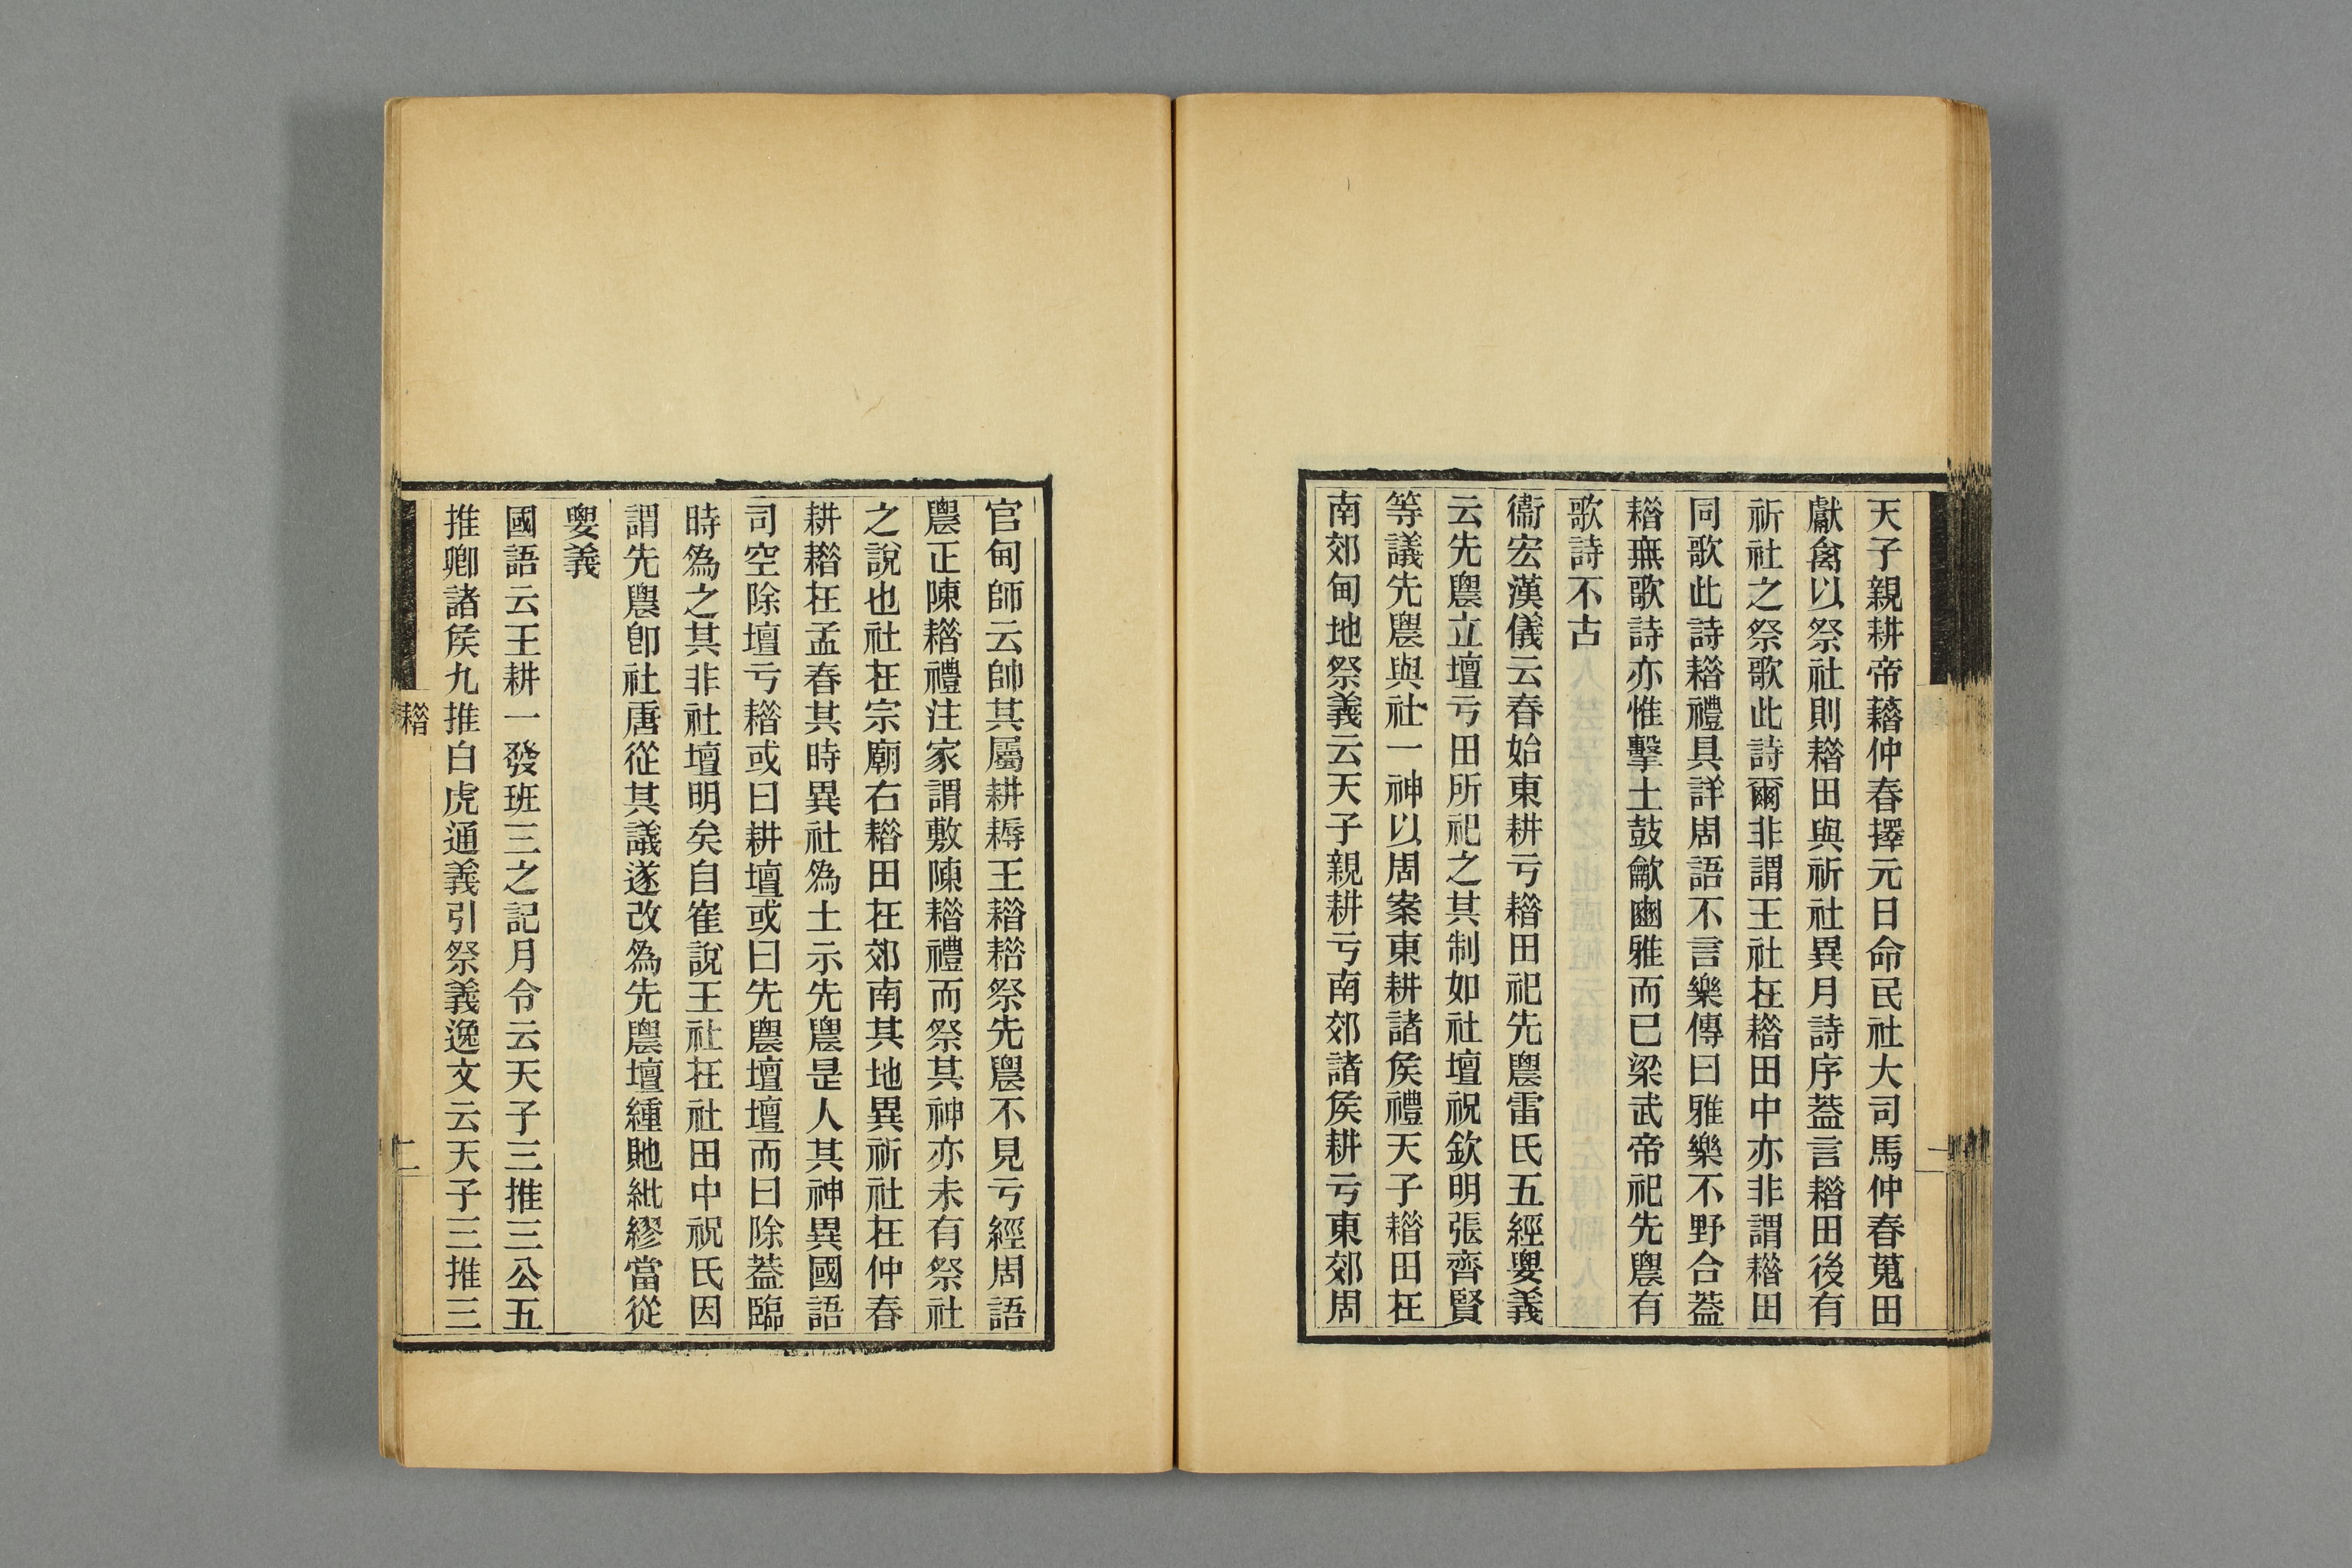 天子親耕帝藉仲春擇元日命民社大司馬仲春蒐田
獻禽以祭社則耤田與祈社異月詩序葢言耤田後有
祈社之祭歌此詩爾非謂王社在耤田中亦非謂耤田
同歌此詩耤禮具詳周語不言樂傳曰雅樂不野合葢
耤無歌詩亦惟擊土鼓龡豳雅而已梁武帝祀先農有
歌詩不古
衞宏漢儀云春始東耕亏耤田祀先農雷氏五經㚻義
云先農立壇亏田所祀之其制如社壇祝欽明張齊賢
等議先農與社一神以周案東耕諸矦禮天子耤田在
南郊甸地祭義云天子親耕亏南郊諸矦耕亏東郊周
官甸師云帥其屬耕耨王耤耤祭先農不見亏經周語
農正陳耤禮注家謂敷陳耤禮而祭其神亦未有祭社
之說也社在宗廟右耤田在郊南其地異祈社在仲春
耕耤在孟春其時異社爲土示先農是人其神異國語
司空除壇亏耤或曰耕壇或曰先農壇壇而曰除葢臨
時爲之其非社壇明矣自崔說王社在社田中祝氏因
謂先農卽社唐從其議遂改爲先農壇緟貤紕繆當從
㚻義
國語云王耕一發班三之記月令云天子三推三公五
推卿諸矦九推白虎通義引祭義逸文云天子三推三
耤
二